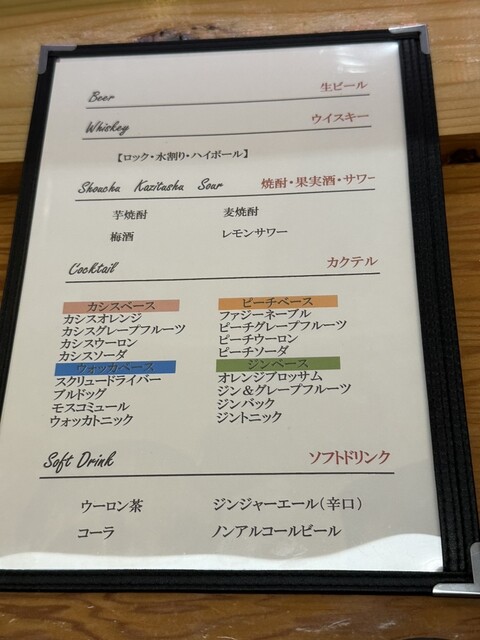 Beer 生ビール
Whiskey ウイスキー
【ロック・水割り・ハイボール】
Shouchu Kazitushu Sour 焼酎・果実酒・サワー
芋焼酎 麦焼酎
梅酒 レモンサワー
Cocktail カクテル
カシスベース ピーチベース
カシスオレンジ ファジーネーブル
カシスグレープフルーツ ピーチグレープフルーツ
カシスウーロン ピーチウーロン
カシスソーダ ピーチソーダ
ウォッカベース ジンベース
スクリュードライバー オレンジブロッサム
ブルドッグ ジン&グレープフルーツ
モスコミュール ジンバック
ウォッカトニック ジントニック
Soft Drink ソフトドリンク
ウーロン茶 ジンジャーエール(辛口)
コーラ ノンアルコールビール